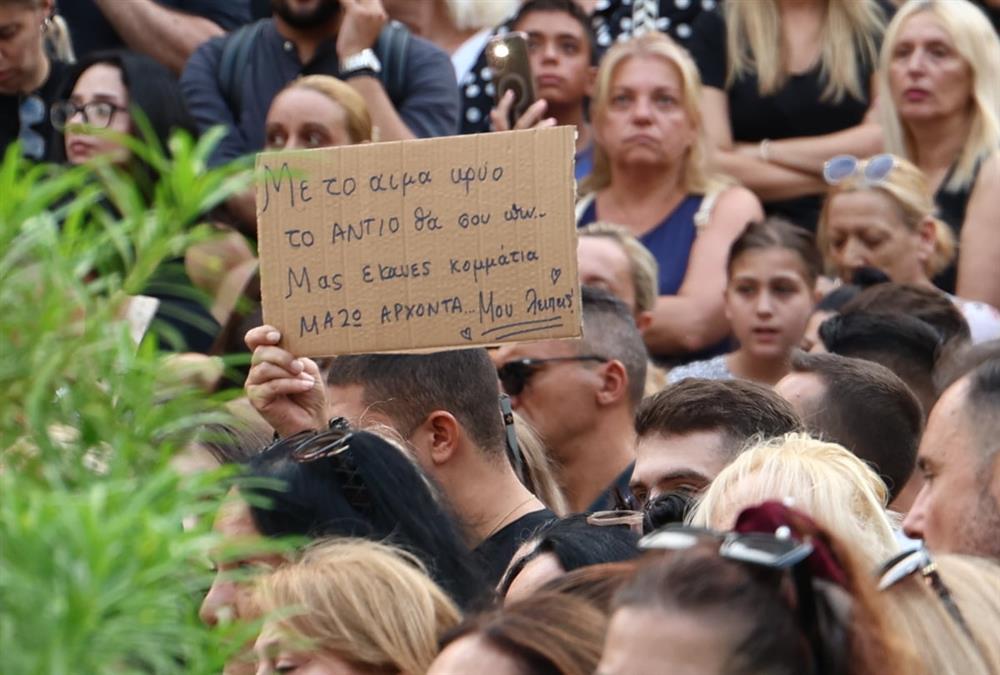 Με το αιμα κρύο
το ΑΝΤΙΟ θα σου πω..
Μας έκανες κομμάτια
ΜΑΖΩ ΑΡΧΟΝΤΑ... Μου λειπεις!